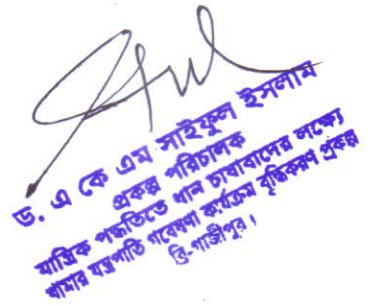 ড. এ কে এম সাইফুল ইসলাম
প্রকল্প পরিচালক
যান্ত্রিক পদ্ধতিতে ধান চাষাবাদের লক্ষ্যে
খামার যন্ত্রপাতি গবেষণা কার্যক্রম বৃদ্ধিকরণ প্রকল্প
ব্রি-গাজীপুর।